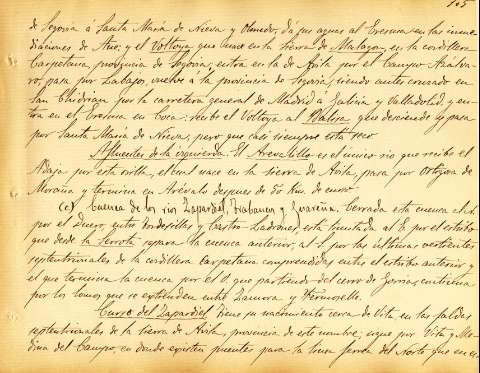 105
de Segovia á Santa María de Nieva y Olmedo, dá sus aguas al Eresma en las inme-
diaciones de Ano; y el Voltoya que nace en la sierra de Malagon, en la cordillera
Carpetana, provincia de Segovia, entra en la de Avila por el Campo Azalva-
ro, pasa por Labajos, vuelve á la provincia de Segovia, siendo antes cruzado en
San Chidrian por la carretera general de Madrid á Galicia y Valladolid, y en-
tra en el Eresma en Coca; recibe el Voltoya al Balisa que desciende y pasa
por Santa María de Nieva, pero que casi siempre está seco
Afluentes de la izquierda. El Arevalillo es el único rio que recibe el
Adaja por esta orilla, el cual nace en la Sierra de Avila, pasa por
Moraña y termina en Arévalo despues de 50 Km. de curso
(c) Cuenca de los rios Zapardiel, Trabancos y Guareña. Cerrada esta cuenca al N.
por el Duero, entre Tordesillas y Castro-Ladrones, está limitada al E. por el estribo
que desde la Serrota separa la cuenca anterior; al S. por las últimas vertientes
septentrionales de la cordillera carpetana comprendidas entre el estribo anterior y
el que termina la cuenca por el O. que partiendo del cerro de Gorria, continua
por los lomos que se extienden entre Zamora y Fermoselle.
Curso del Zapardiel. Tiene su nacimiento cerca de Vita, en las faldas
septentrionales de la sierra de Avila, provincia de este nombre; sigue por Vita y Me-
dina del Campo, en donde existen puentes para la linea férrea del Norte que en es-